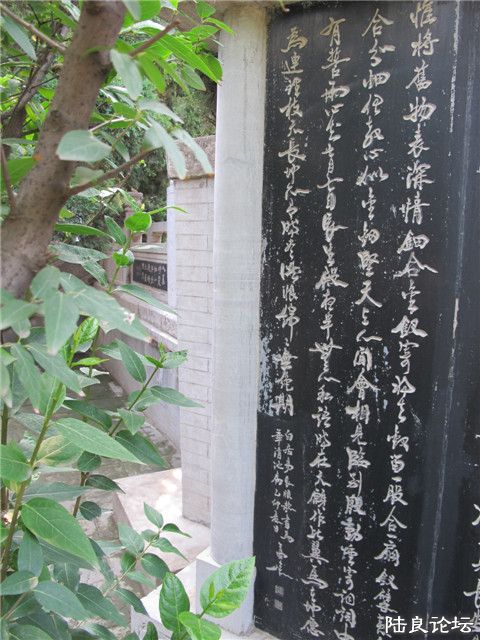 惟將舊物表深情鈿合金釵寄將去釵留一股合一扇釵擘
合分鈿但教心似金鈿堅天上人間會相見臨別殷勤重寄詞詞中
有誓兩心知七月七日長生殿夜半無人私語時在天願作比翼鳥在地願
為連理枝天長地久有時盡此恨綿綿無絕期
白居易長恨歌書為
華清池
陆良论坛